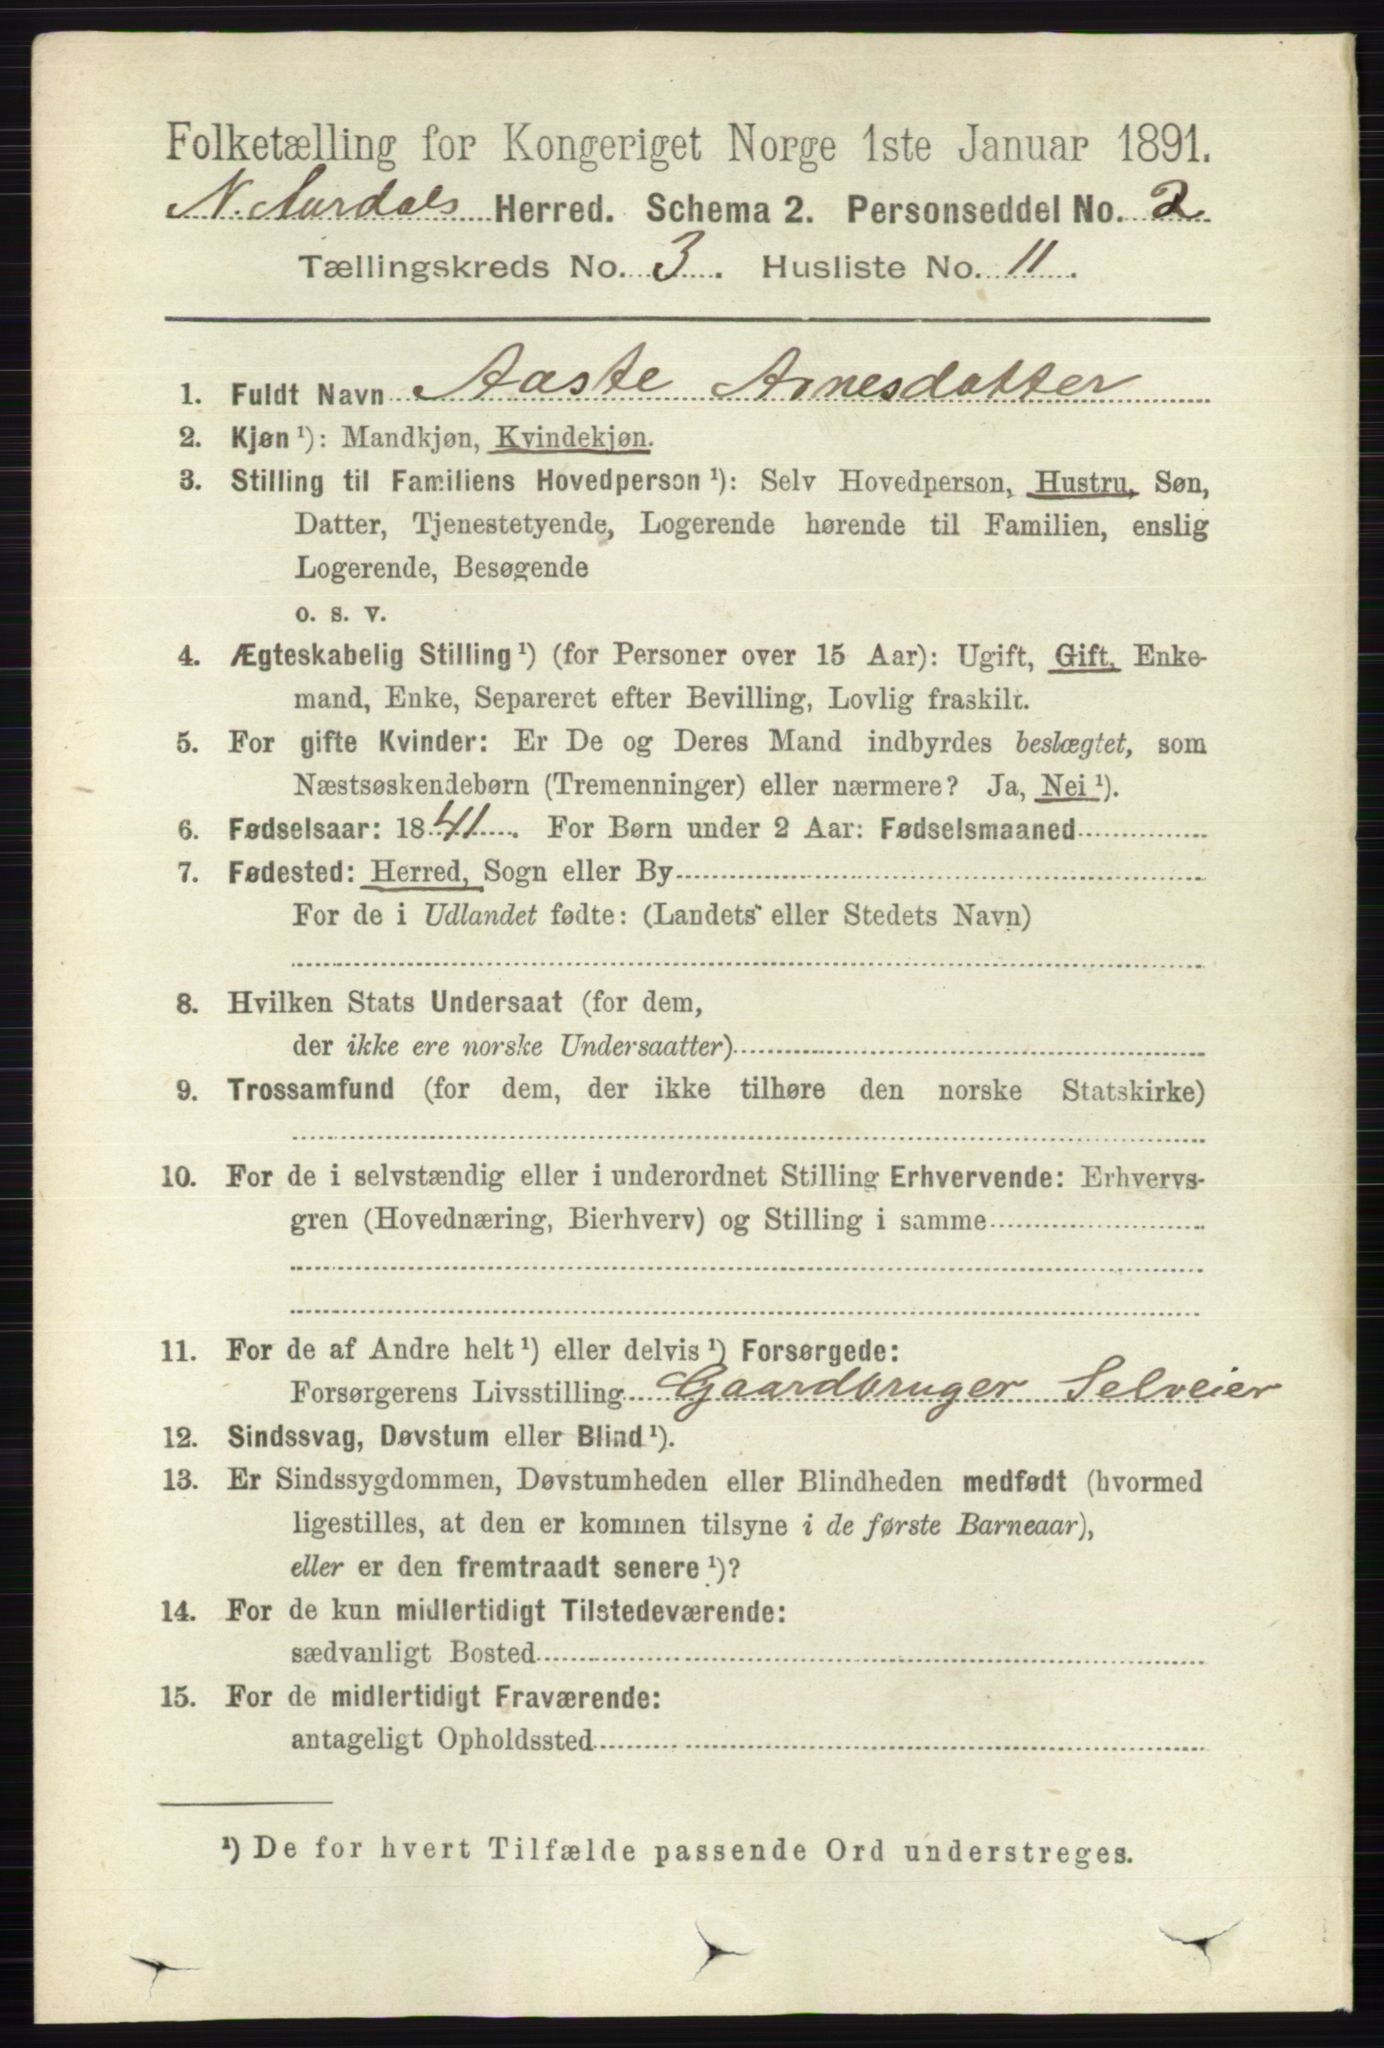 Folketælling for Kongeriget Norge 1ste Januar 1891.
N. Aurdals Herred. Schema 2. Personseddel No. 2
Tællingskreds No. 3. Husliste No. 11.
1. Fuldt Navn Aaste Arnesdatter
2. Kjøn ¹): Mandkjøn, Kvindekjøn.
3. Stilling til Familiens Hovedperson ¹): Selv Hovedperson, Hustru, Søn,
Datter, Tjenestetyende, Logerende hørende til Familien, enslig
Logerende, Besøgende
o. s. v.
4. Ægteskabelig Stilling ¹) (for Personer over 15 Aar): Ugift, Gift, Enke-
mand, Enke, Separeret efter Bevilling, Lovlig fraskilt.
5. For gifte Kvinder: Er De og Deres Mand indbyrdes beslægtet, som
Næstsøskendebørn (Tremenninger) eller nærmere? Ja, Nei ¹).
6. Fødselsaar: 1841. For Børn under 2 Aar: Fødselsmaaned
7. Fødested: Herred, Sogn eller By
For de i Udlandet fødte: (Landets eller Stedets Navn)
8. Hvilken Stats Undersaat (for dem,
der ikke ere norske Undersaatter)
9. Trossamfund (for dem, der ikke tilhøre den norske Statskirke)
10. For de i selvstændig eller i underordnet Stilling Erhvervende: Erhvervs-
gren (Hovednæring, Bierhverv) og Stilling i samme
11. For de af Andre helt ¹) eller delvis ¹) Forsørgede:
Forsørgerens Livsstilling Gaardbruger Selveier
12. Sindssvag, Døvstum eller Blind ¹).
13. Er Sindssygdommen, Døvstumheden eller Blindheden medfødt (hvormed
ligestilles, at den er kommen tilsyne i de første Barneaar),
eller er den fremtraadt senere ¹)?
14. For de kun midlertidigt Tilstedeværende:
sædvanligt Bosted
15. For de midlertidigt Fraværende:
antageligt Opholdssted
¹) De for hvert Tilfælde passende Ord understreges.